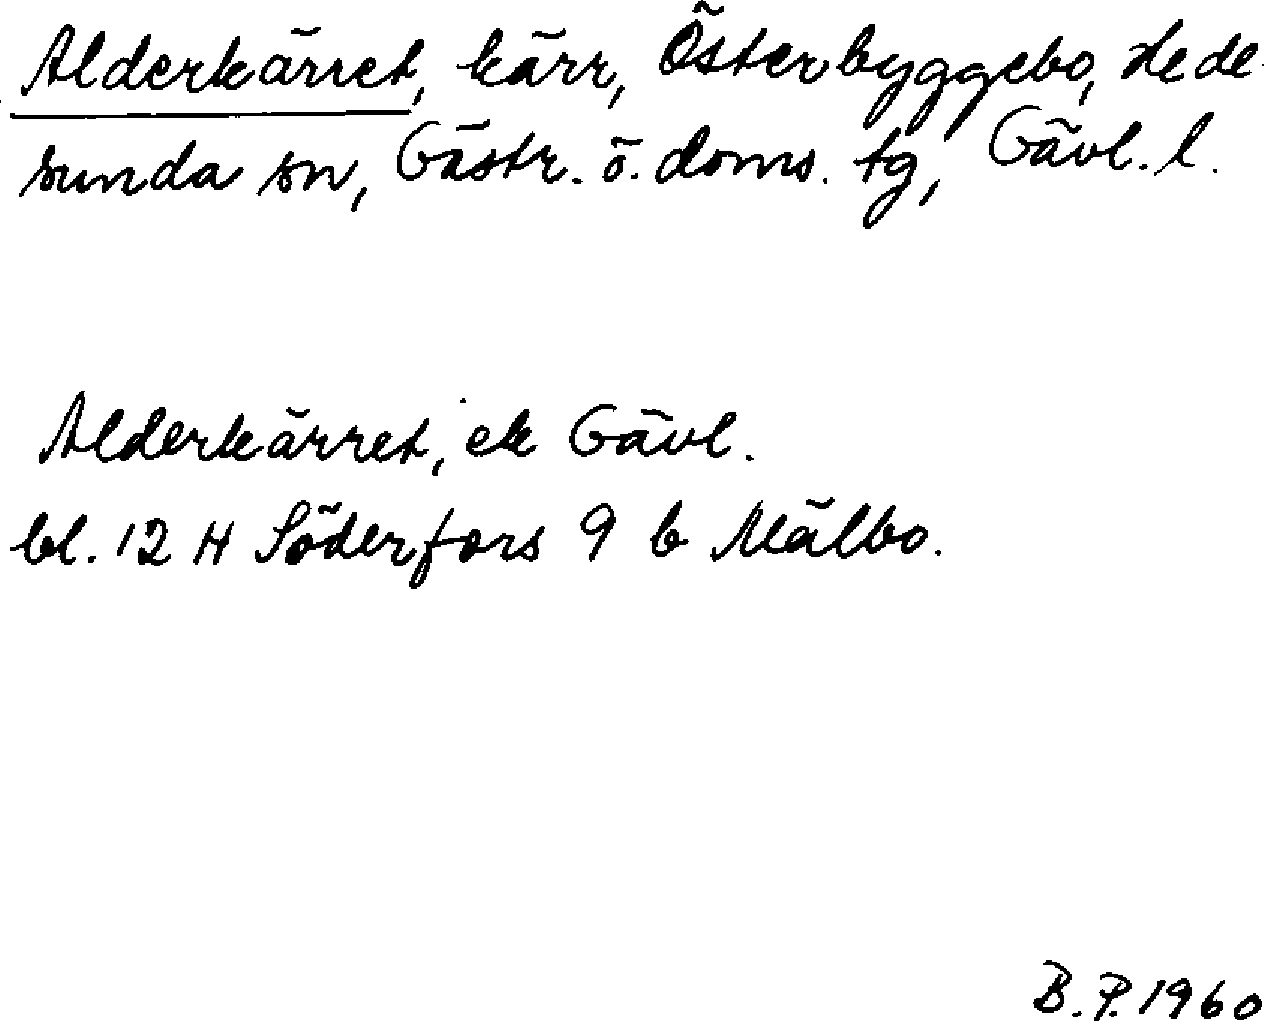 Alderkärret, kärr, Österbyggebo, Hede-
sunda sn, Gästr. ö. doms. tg, Gävl. l.
Alderkärret, ek Gävl.
bl. 12 H Söderfors 9 b Mälbo.
B. P. 1960